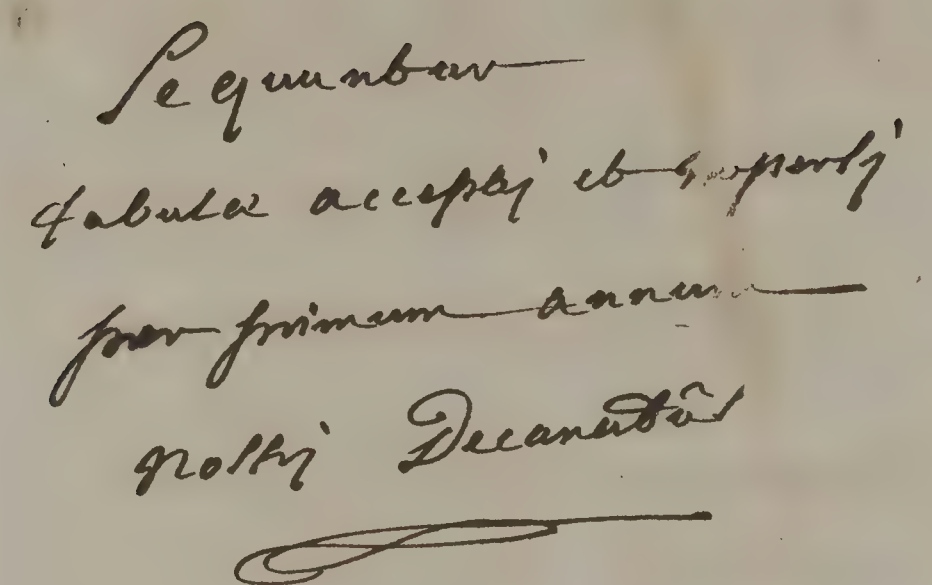 Sequuntur
tabulæ accepti et expensi
per primum annum
nostri Decanatûs